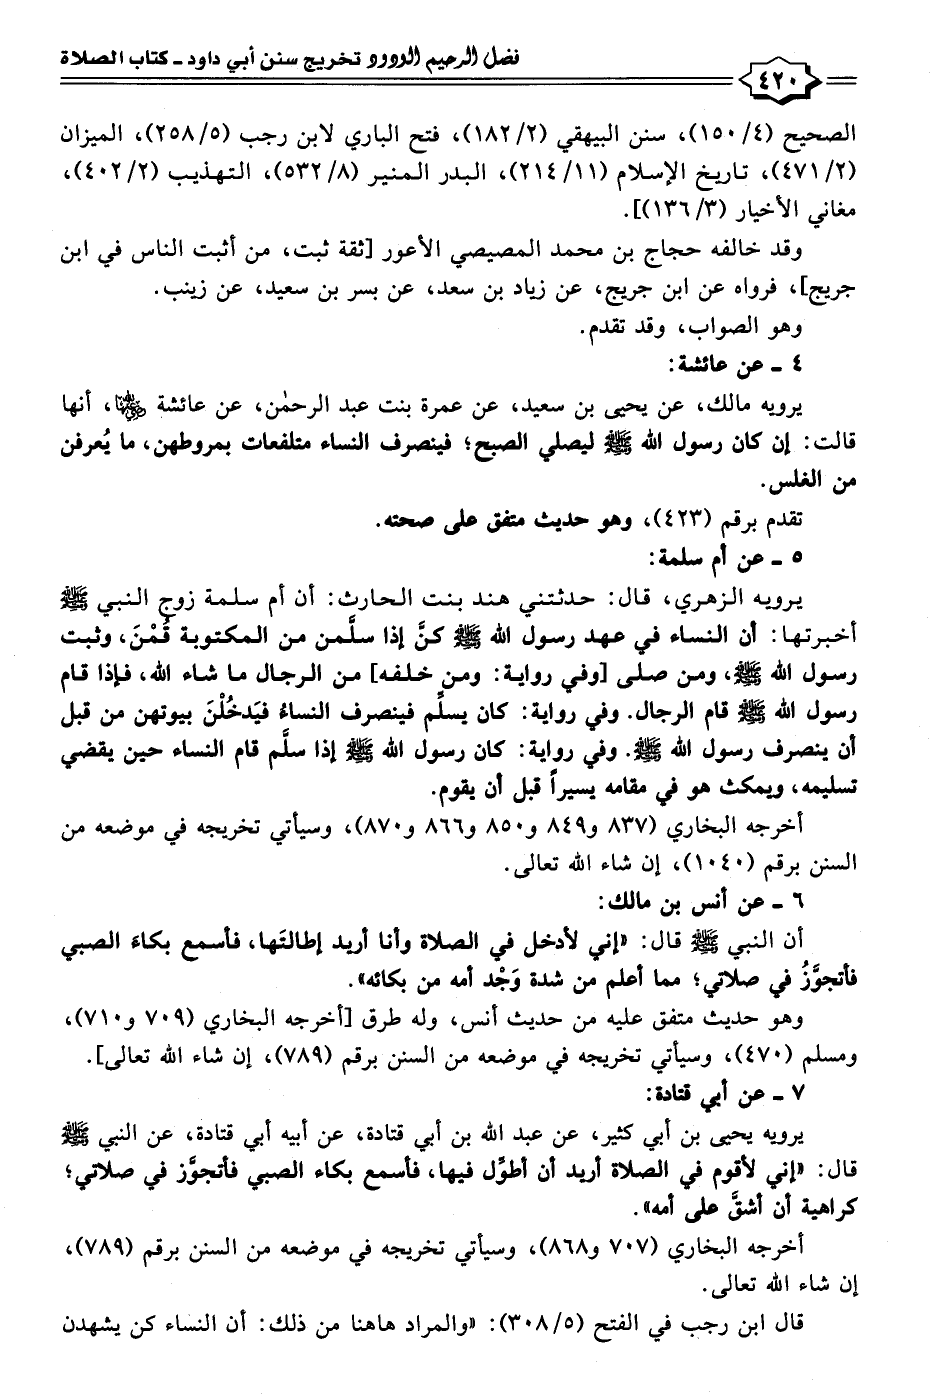 فضل الرحيم الودود تخريج سنن أبي داود - كتاب الصلاة
٤٢٠
الصحيح (١٥٠/٤)، سنن البيهقي (١٨٢/٢)، فتح الباري لابن رجب (٢٥٨/٥)، الميزان
(٤٧١/٢)، تاريخ الإسلام (٢١٤/١١)، البدر المنير (٥٣٢/٨)، التهذيب (٤٠٢/٢)،
مغاني الأخيار (١٣٦/٣)].
وقد خالفه حجاج بن محمد المصيصي الأعور [ثقة ثبت، من أثبت الناس في ابن
جريج]، فرواه عن ابن جريج، عن زياد بن سعد، عن بسر بن سعيد، عن زينب.
وهو الصواب، وقد تقدم.
٤ - عن عائشة:
يرويه مالك، عن يحيى بن سعيد، عن عمرة بنت عبد الرحمٰن، عن عائشة رضي الله عنها، أنها
قالت: إن كان رسول الله ﷺ ليصلي الصبح؛ فينصرف النساء متلفعات بمروطهن، ما يُعرفن
من الغلس.
تقدم برقم (٤٢٣)، وهو حديث متفق على صحته.
٥ - عن أم سلمة:
يرويه الزهري، قال: حدثتني هند بنت الحارث: أن أم سلمة زوج النبي ﷺ
أخبرتها: أن النساء في عهد رسول الله ﷺ كنَّ إذا سلَّمن من المكتوبة قُمْنَ، وثبت
رسول الله ﷺ، ومن صلى [وفي رواية: ومن خلفه] من الرجال ما شاء الله، فإذا قام
رسول الله ﷺ قام الرجال. وفي رواية: كان يسلِّم فينصرف النساءُ فيَدخُلْنَ بيوتهن من قبل
أن ينصرف رسول الله ﷺ. وفي رواية: كان رسول الله ﷺ إذا سلَّم قام النساء حين يقضي
تسليمه، ويمكث هو في مقامه يسيراً قبل أن يقوم.
أخرجه البخاري (٨٣٧ و٨٤٩ و٨٥٠ و٨٦٦ و٨٧٠)، وسيأتي تخريجه في موضعه من
السنن برقم (١٠٤٠)، إن شاء الله تعالى.
٦ - عن أنس بن مالك:
أن النبي ﷺ قال: «إني لأدخل في الصلاة وأنا أريد إطالتَها، فأسمع بكاءَ الصبي
فأتجوَّزُ في صلاتي؛ مما أعلم من شدة وَجْد أمه من بكائه».
وهو حديث متفق عليه من حديث أنس، وله طرق [أخرجه البخاري (٧٠٩ و٧١٠)،
ومسلم (٤٧٠)، وسيأتي تخريجه في موضعه من السنن برقم (٧٨٩)، إن شاء الله تعالى].
٧ - عن أبي قتادة:
يرويه يحيى بن أبي كثير، عن عبد الله بن أبي قتادة، عن أبيه أبي قتادة، عن النبي ﷺ
قال: «إني لأقوم في الصلاة أريد أن أطوِّل فيها، فأسمع بكاء الصبي فأتجوَّز في صلاتي؛
كراهية أن أشقَّ على أمه».
أخرجه البخاري (٧٠٧ و٨٦٨)، وسيأتي تخريجه في موضعه من السنن برقم (٧٨٩)،
إن شاء الله تعالى.
قال ابن رجب في الفتح (٣٠٨/٥): «والمراد هاهنا من ذلك: أن النساء كن يشهدن